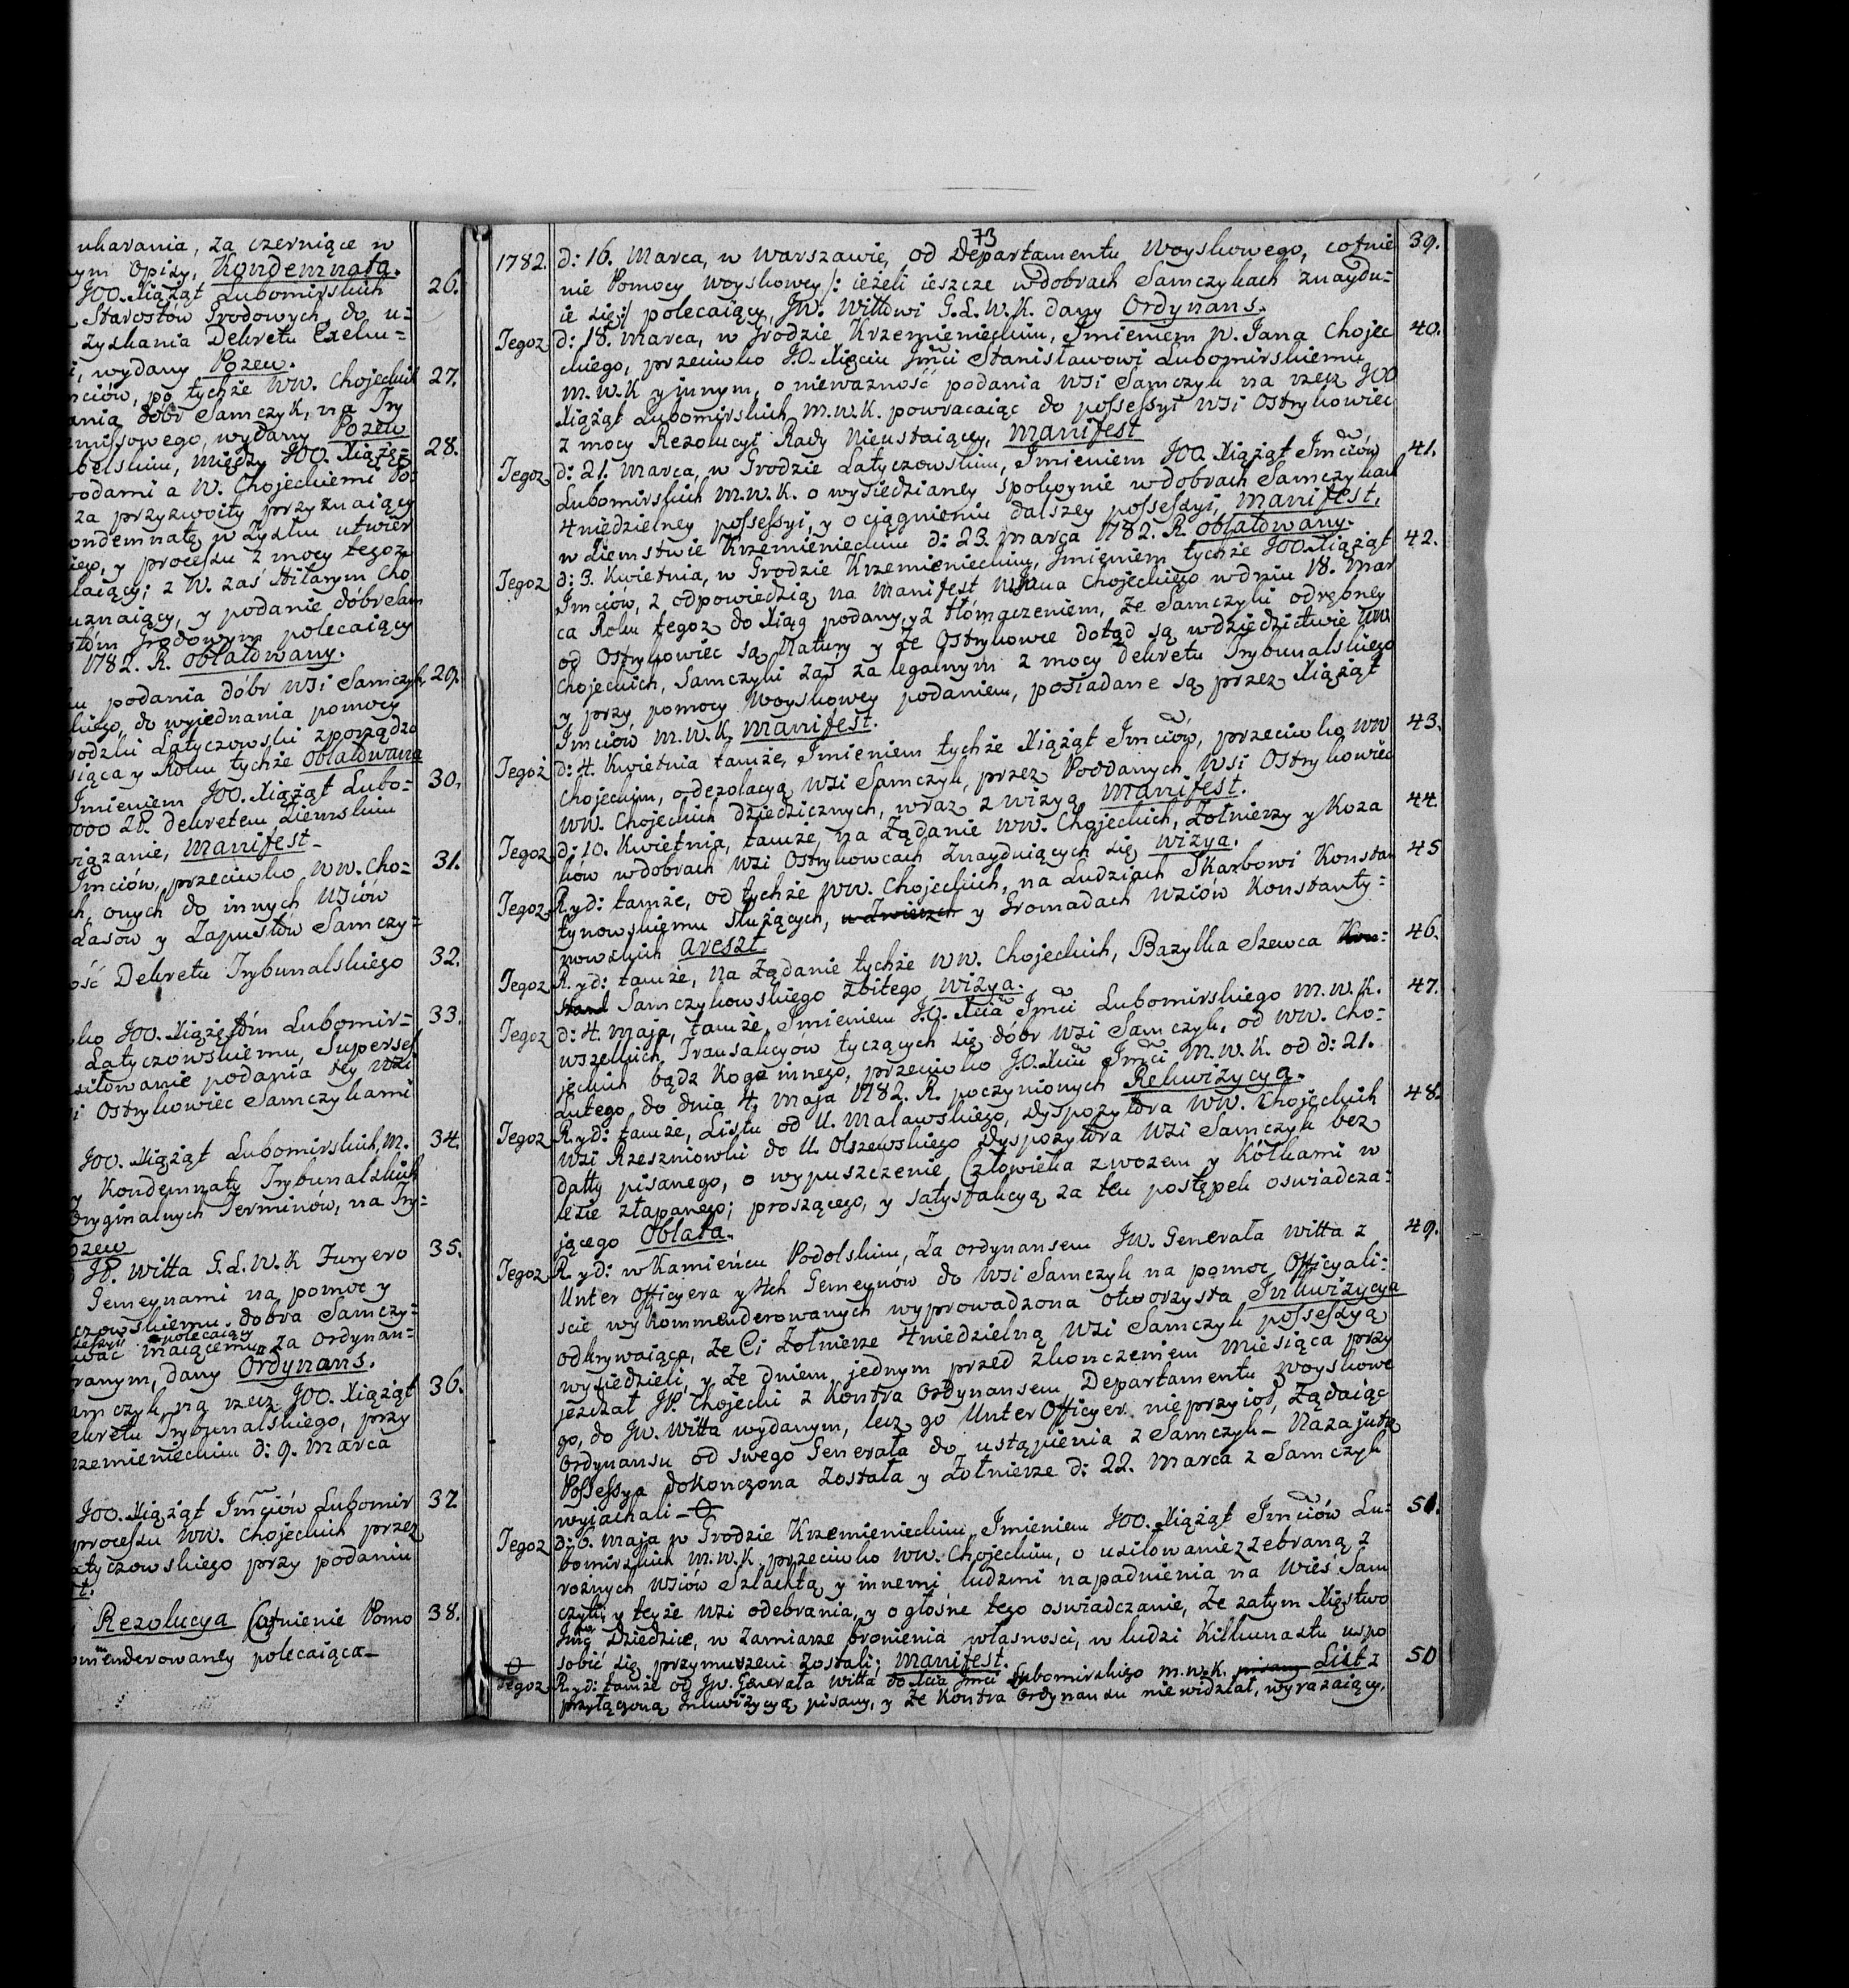 ukarania, za czerniące w
ym Opisy, Kondemnata.
JOO. Xiążąt Lubomirskich 26.
Starostów Grodowych, do u-
zyskania Dekretu Exeku-
i, wydany Pozew.
nciów, po tychże WW. Chojeckich 27.
ania dobr Samczyk, na Try
emissowego, wydany Pozew
belskim, między JOO. Xiążę- 28.
wodami a W. Chojeckiemi
za przyzwoity przyznaiący
ondemnatę w zysku utwier
iego, y processu z mocy tegoż
laiący; z W. zaś Hilarym Cho
uznaiący, y podanie dóbr Sam
stóm Grodowym polecaiący
1782. R. oblatowany.
u podania dóbr wsi Samczyk 29.
kiego, do wyjednania pomocy
rodzki Latyczowski zporządzo
siąca y Roku tychże Oblatowana
Imieniem JOO. Xiążąt Lubo- 30.
0000 28. dekretem Ziemskim
wiązanie, Manifest_
Jmciów, przeciwko WW. Cho= 31.
ch, onych do innych Wsiów
Lasów y Zapustów Samczy-
ość Dekretu Trybunalskiego 32.
ko JOO. Xiążętóm Lubomir= 33.
Latyczowskiemu, Supersef
siłowanie podania tey wsi
i Ostrykowiec Samczykami
JOO. Xiążąt Lubomirskich, M. 34.
y Kondemnaty Trybunalskich
Oryginalnych Terminów, na Try-
ozew
JP. Witta G.L.W.K Furyero 35.
Gemeynami na pomoc y
czowskiemu dobra Samczy-
polecaiący
wać maiącemu za Ordynan-
ranym, dany Ordynans.
amczyk, na rzecz JOO. Xiążąt 36.
ekretu Trybunalskiego, przy
rzemienieckim d: 9. Marca
JOO. Xiążąt Jmciów Lubomir 37
processu WW. Chojeckich przez
Łatyczowskiego przy podaniu
t.
Rezolucya Cofnienie Pomo 38.
omenderowaney polecaiąca_
73
1782. d: 16. Marca, w Warszawie, od Departamentu Woyskowego, cofnie 39.
nie Pomocy Woyskowey /: ieżeli ieszcze w dobrach Samczykach znaydu-
ie się :/ polecaiący, JW. Wittowi G.L.W.K. dany Ordynans.
Tegoż d: 18. Marca, w Grodzie Krzemienieckim, Imieniem W. Jana Chojec 40.
kiego, przeciwko J.O. Xięciu Jmci Stanisławowi Lubomirskiemu
M.W.K y innym, o nieważność podania wsi Samczyk na rzecz JOO
Xiążąt Lubomirskich M.W.K. powracaiąc do possessyi wsi Ostrykowiec
z mocy Rezolucyi Rady Nieustaiącey, Manifest
Tegoż d: 21. Marca, w Grodzie Latyczowskim, Imieniem JOO. Xiążąt Jmciów 41.
Lubomirskich M.W.K. o wysiedzianey spokoynie w dobrach Samczykach
4niedzielney possessyi, y o ciągnieniu dalszey possessyi, Manifest,
w Ziemstwie Krzemienieckim d: 23. Marca 1782. R. oblatowany.
Tegoż d: 3. Kwietnia, w Grodzie Krzemienieckim, Imieniem tychże JOO. Xiążąt 42.
Jmciów, z odpowiedzią na Manifest W. Jana Chojeckiego w dniu 18. Mar
ca Roku tegoż do Xiąg podany, y z tłómaczeniem, że Samczyki odrębney
od Ostrykowiec są Natury y że Ostrykowce dotąd są w dziedzictwie WW
Chojeckich, Samczyki zaś za legalnym z mocy dekretu Trybunalskiego
y przy pomocy Woyskowey podaniem, posiadane są przez Xiążąt
Jmciów M.W.K. Manifest.
Tegoż d: 4. Kwietnia tamże, Imieniem tychże Xiążąt Jmciów, przeciwko WW 43.
Chojeckim, o dezolacyą wsi Samczyk, przez Poddanych wsi Ostrykowiec
WW. Chojeckich dziedzicznych, wraz z wizyą, Manifest.
Tegoż d: 10. Kwietnia, tamże, na Żądanie WW. Chojeckich, Żołnierzy y Koza 44.
ków w dobrach wsi Ostrykowcach znayduiących się wizya.
Tegoż R. y d: tamże, od tychże WW. Chojeckich, na Ludziach Skarbowi Konstan 45
tynowskiemu służących, y Gromadach Wsiów Konstanty-
nowskich areszt
Tegoż R. y d: tamże, na żądanie tychże WW. Chojeckich, Bazylka Szewca Kon- 46.
Samczykowskiego zbitego wizya.
Tegoż d: 4. Maja, tamże, Imieniem J.O. Xcia Jmci Lubomirskiego M.W.K. 47.
wszelkich Transakcyów tyczących się dóbr wsi Samczyk, od WW. Cho-
jeckich bądz kogo innego, przeciwko J.O. Xciu Jmci M.W.K. od d: 21.
Lutego do dnia 4. Maja 1782. R. poczynionych Rekwizycya.
Tegoż R. y d: tamże, Listu od U. Malawskiego, Dyspozytora WW. Chojeckich 48.
wsi Rzeszniowki do U. Olszewskiego Dyspozytora wsi Samczyk bez
datty pisanego, o wypuszczenie Człowieka z wozem y Kółkami w
lesie złapanego; proszącego, y satysfakcyą za ten postępek oswiadcza-
jącego Oblata.
Tegoż R. y d: w Kamieńcu Podolskim, Za ordynansem JW. Generała Witta z 49.
Unter Officyera y 4ch Gemeynów do wsi Samczyk na pomoc Officyali-
scie wykommenderowanych wyprowadzona otworzysta Inkwizycya
odkrywaiąca, że Ci Żołnierze 4niedzielną wsi Samczyk possessyą
wysiedzieli, y że dniem jednym przed zkonczeniem miesiąca przy
jezdzał JP. Chojecki z Kontra Ordynansem Departamentu Woyskowe
go, do JW. Witta wydanym, lecz go Unter Officyer nie przyioł, żądaiąc
Ordynansu od swego Generała do ustąpienia z Samczyk_ Nazajutrz
Possessya dokończona została y Żołnierze d: 22. Marca z Samczyk
wyjachali_
Tegoż d: 6. Maja w Grodzie Krzemienieckim, Imieniem JOO. Xiążąt Jmciów Lu- 51.
bomirskich M.W.K. przeciwko WW. Chojeckim, o usiłowanie z zebraną z
roznych wsiów Szlachtą y innemi ludzmi napadnienia na Wieś Sam
czyki y teyże wsi odebrania, y o głośne tego oswiadczanie, że zatym Xięstwo
Jmć Dziedzice, w zamiarze bronienia własnosci, w ludzi Kilkunastu uspo
sobić się przymuszeni zostali; Manifest.
Tegoż R. y d: tamże od JW. Generała Witta do Xcia Jmci Lubomirskiego M.W.K. pisany List z 50
przyłączoną Inkwizycyą, pisany, y że Kontra Ordynansu nie widział, wyrażaiący.